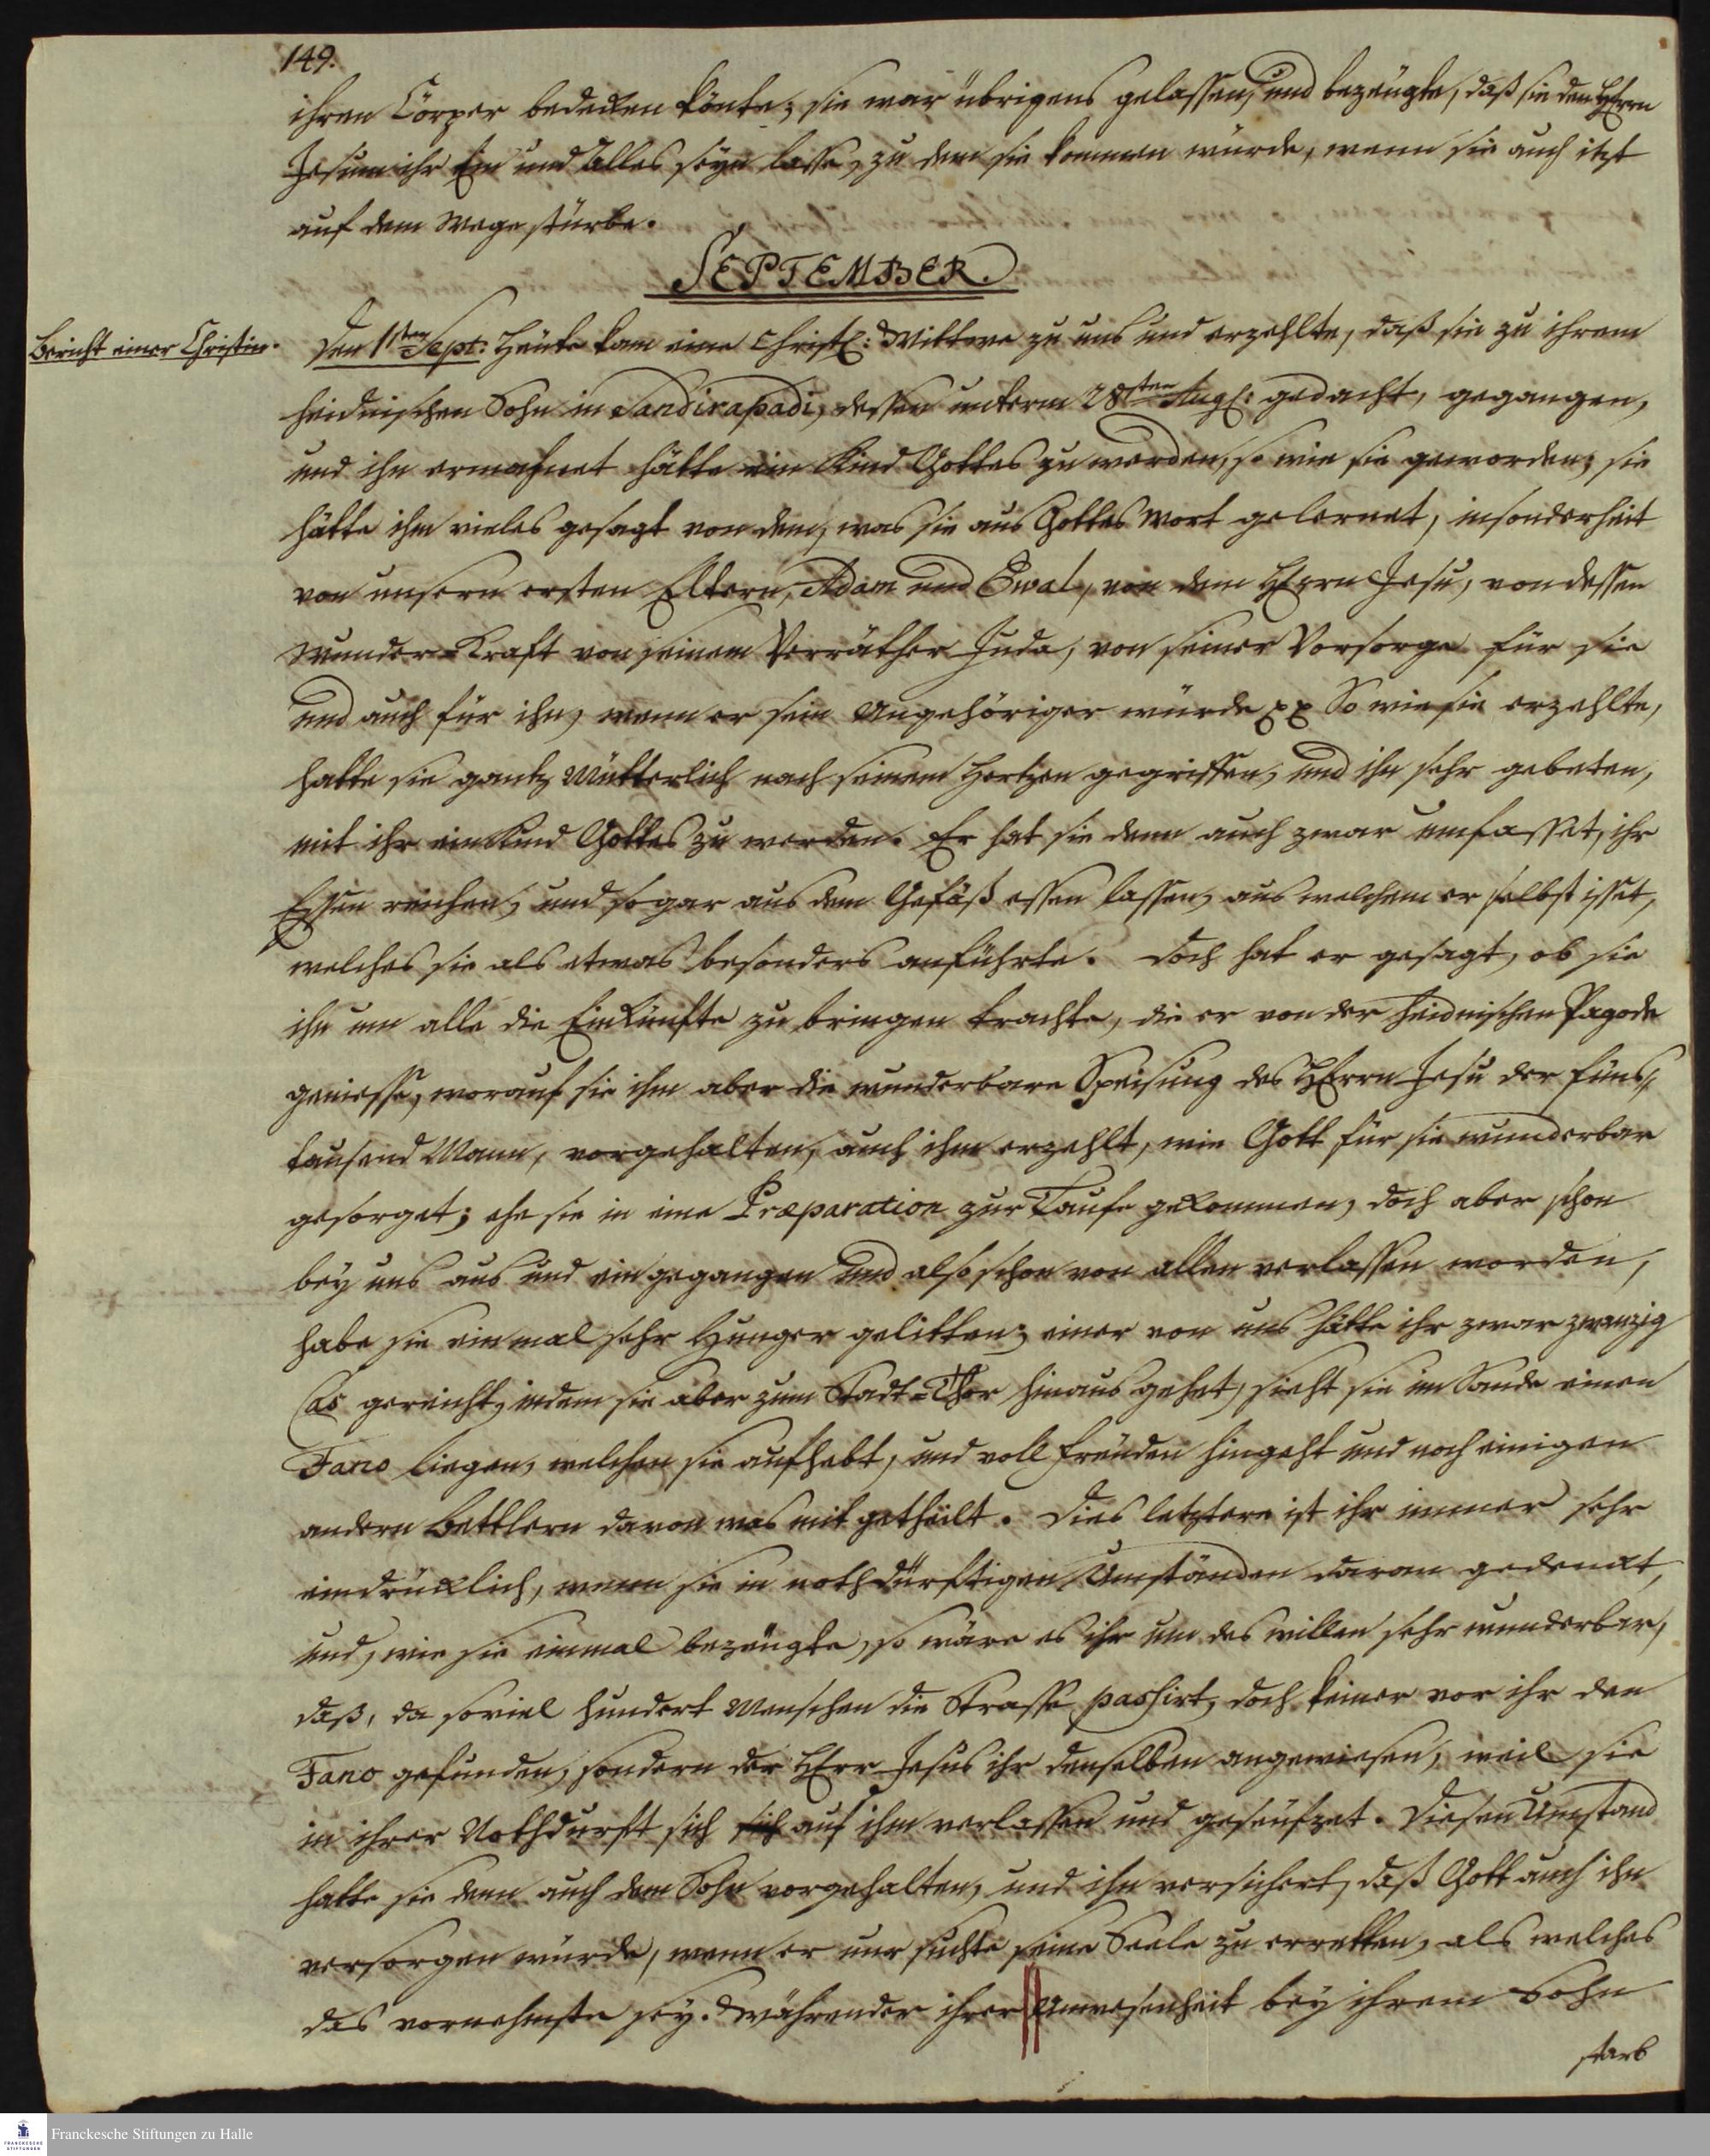 149.
ihren Cörper bedecken könte; sie war übrigens gelassen, und bezeugte, daß sie den HErrn
Jesum ihr Ein und Alles seyn lasse, zu dem sie kommen würde, wenn sie auch itzt
auf dem Wege stürbe.
SEPTEMBER.
Bericht einer Christin.
Den 1sten Sept: Heute kam eine Christl: Wittwe zu uns und erzehlte, daß sie zu ihrem
heidnischen Sohn in Sandirapadi, dessen unterm 28sten Aug: gedacht, gegangen,
und ihn ermahnet hätte ein Kind Gottes zu werden, so wie sie geworden; sie
hätte ihm vieles gesagt von dem, was sie aus Gottes Wort gelernet, insonderheit
von unsern ersten Eltern, Adam und Ewal, von dem HErrn Jesu, von dessen
Wunder-Kraft von seinem Verräther Juda, von seiner Vorsorge für sie
und auch für ihn, wenn er sein Angehöriger würde pp So wie sie erzehlte,
hatte sie gantz Mütterlich nach seinem Hertzen gegriffen, und ihn sehr gebeten,
mit ihr ein Kind Gottes zu werden. Er hat sie denn auch zwar umfasset, ihr
Essen reichen, und sogar aus dem Gefäß essen lassen, aus welchem er selbst isset,
welches sie als etwas besonders anführte. Doch hat er gesagt, ob sie
ihn um alle die Einkünfte zu bringen trachte, die er von der heidnischen Pagode
geniesse, worauf sie ihm aber die wunderbare Speisung des HErrn Jesu der fünf
tausend Mann, vorgehalten, auch ihm erzehlt, wie Gott für sie wunderbar
gesorget; ehe sie in eine Præparation zur Taufe gekommen, doch aber schon
bey uns aus und ein gegangen und also schon von allen verlassen worden,
habe sie einmal sehr Hunger gelitten; einer von uns hätte ihr zwar zwanzig
Cas gereicht, indem sie aber zum Stadt-Thor hinaus gehet, sieht sie im Sande einen
Fano liegen, welchen sie aufhebt, und voll Freuden hingeht und noch einigen
andern Bettlern davon was mit getheilt. Dies letztere ist ihr immer sehr
eindrücklich, wenn sie in nothdürftigen Umständen daran gedenckt,
und, wie sie einmal bezeugte, so wäre es ihr um des willen sehr wunderbar,
daß, da soviel hundert Menschen die Strasse passirt, doch keiner vor ihr den
Fano gefunden, sondern der HErr Jesus ihr denselben angewiesen, weil sie
in ihrer Nothdurft sich auf ihm verlassen und geseufzet. Diesen Umstand
hatte sie denn auch dem Sohn vorgehalten, und ihn versichert, daß Gott auch ihn
versorgen würde, wenn er nur suchte seine Seele zu erretten, als welches
das vornehmste sey. Währender ihrer Anwesenheit bey ihrem Sohn
starb
Franckesche Stiftungen zu Halle
FRANCKESCHE
STIFTUNGEN